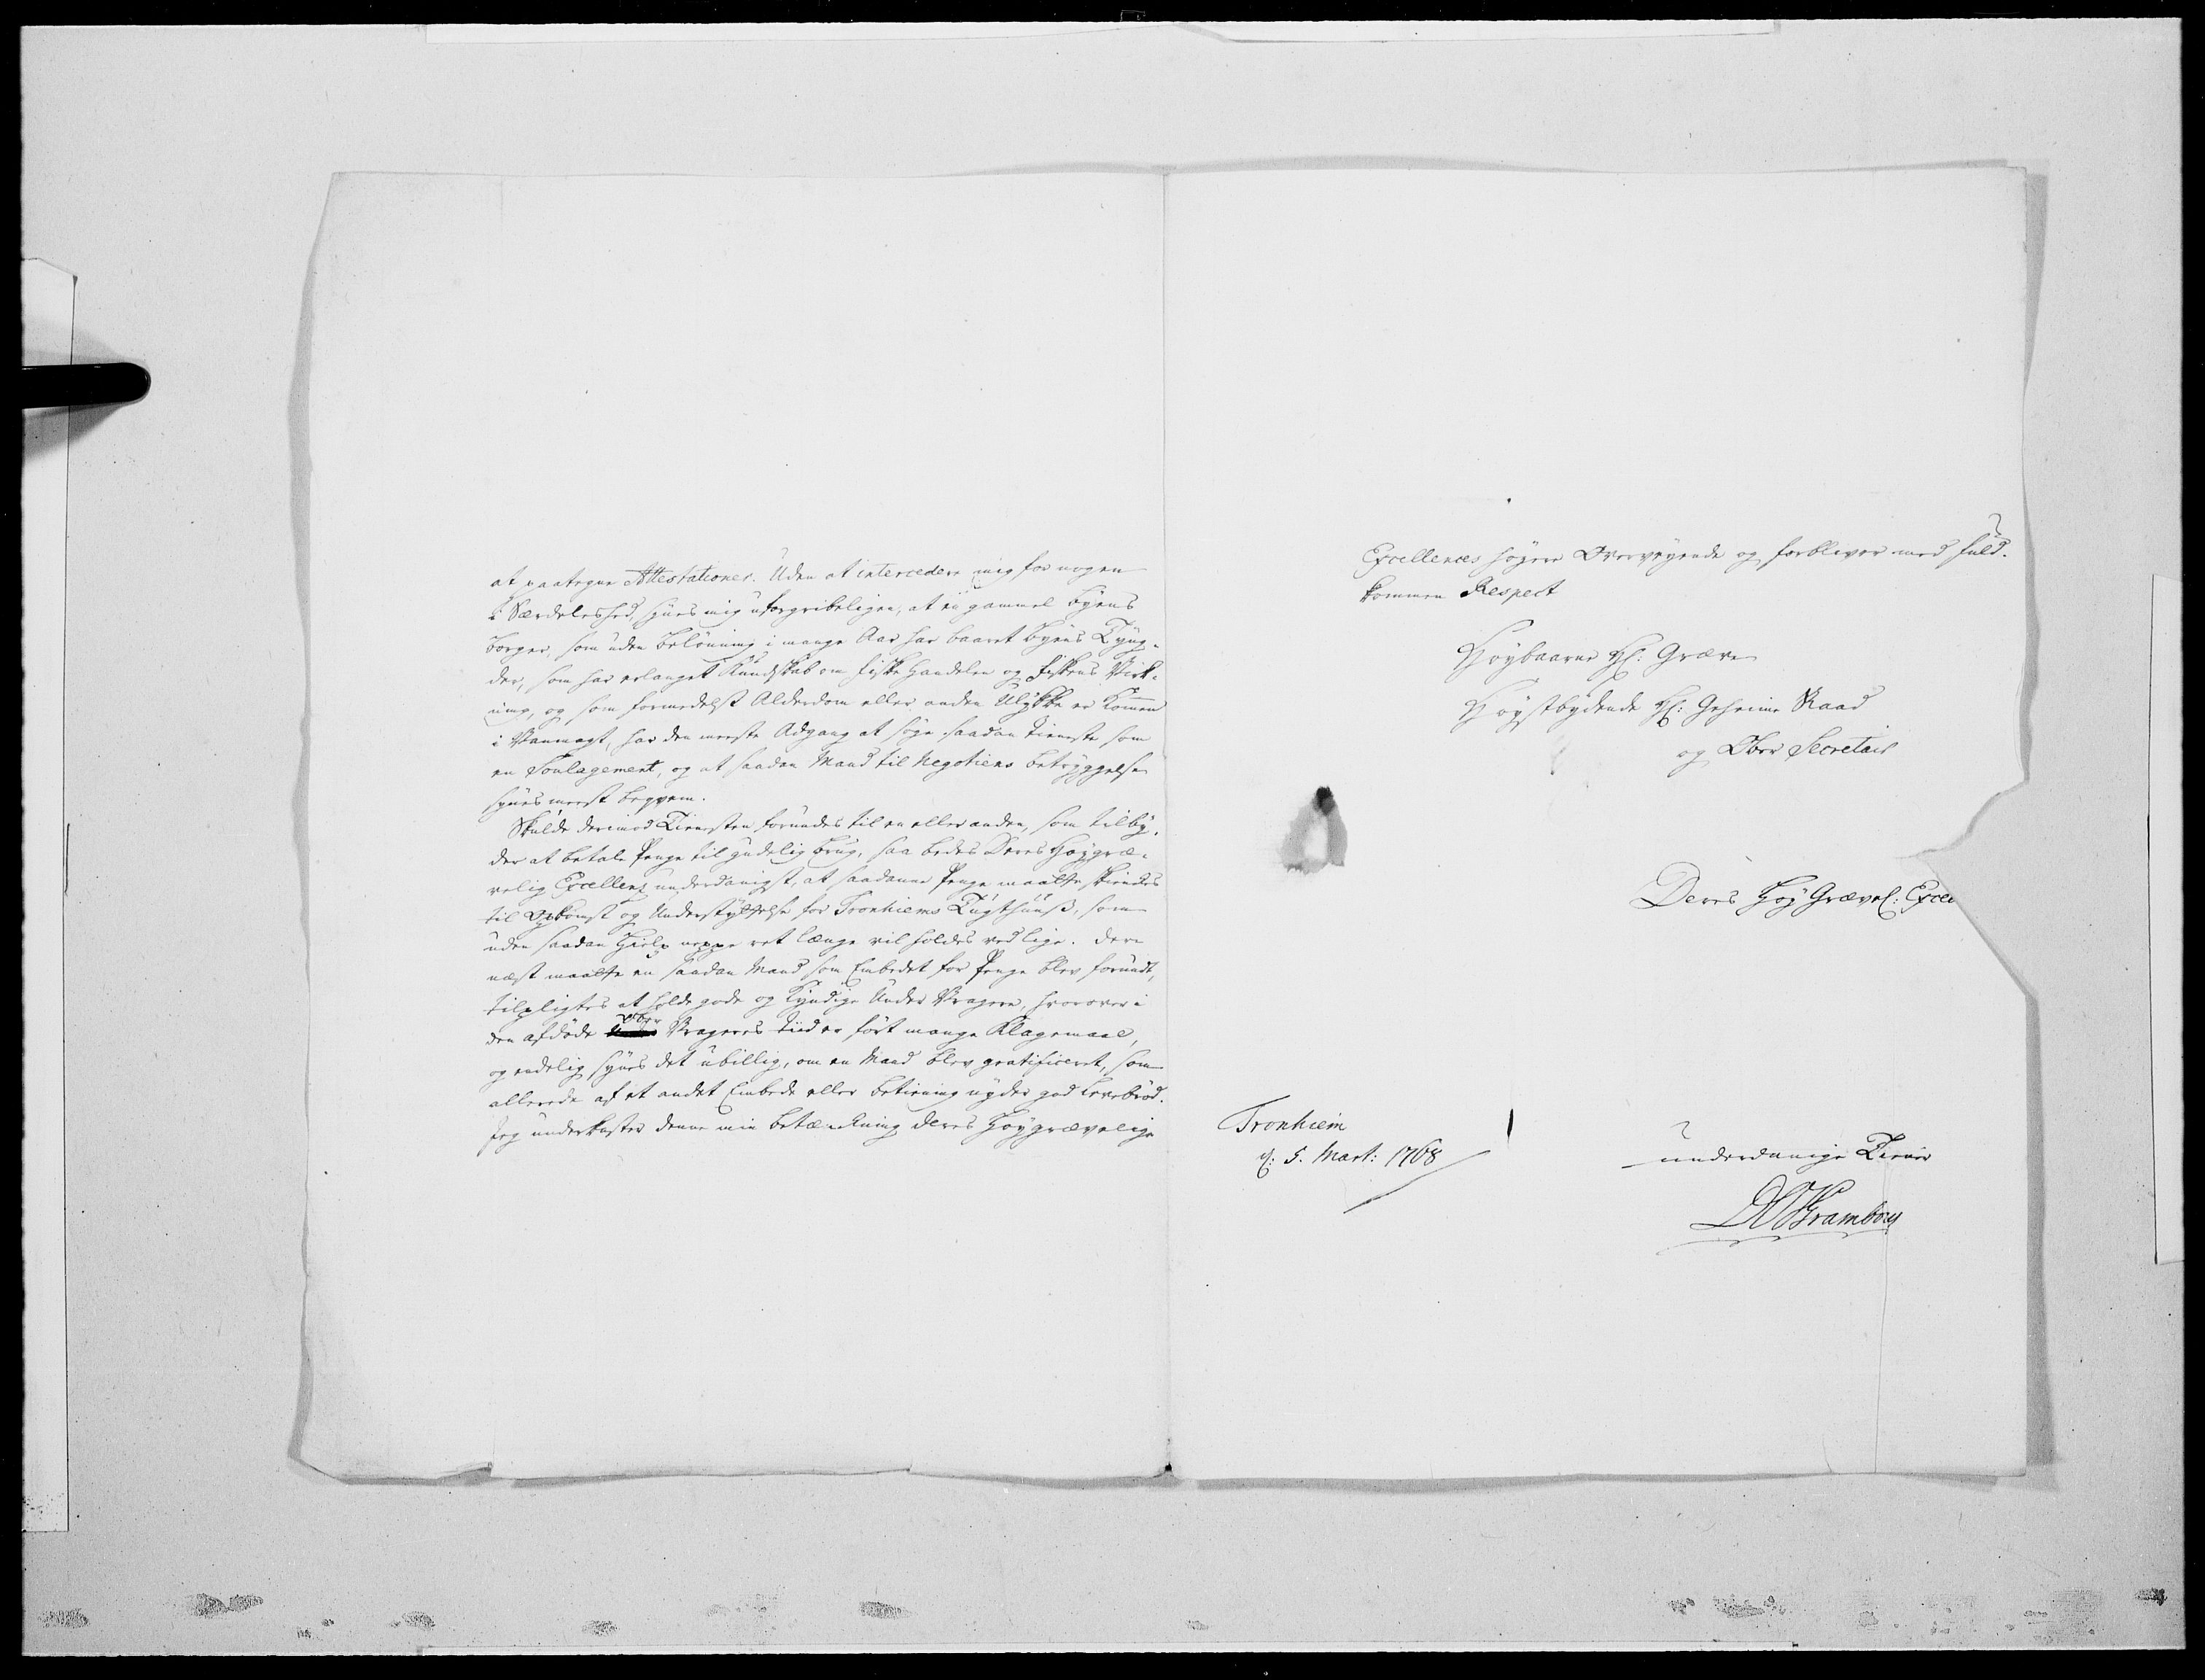 at paategne Attestationer. Uden at intercedere mig for nogen
i Særdeleshed, synes mig uforgribeligen, at en gammel Byens
Borger, som uden Belønning i mange Aar har baaret Byens Tyng-
der, som har erlanget Kundskab om Fiske Handelen og Fiskens Virk-
ning, og som formedelst Alderdom eller anden Ulykke er kommen
i Vanmagt, har den meeste Adgang at søge saadan Tieneste som
en Soulagement, og at saadan Mand til Negotiens Betryggelse
synes meest beqvem.
Skulde derimod Tienesten forundes til en eller anden, som tilby-
der at betale Penge til gudelig Brug, saa bedes Deres Høygræ-
velig Excellenz underdanigst, at saadanne Penge maatte skienckes
til Opkomst og Understyttelse for Tronhiems Tugthuuß, som
uden saadan Hielp neppe ret længe vil holdes ved lige. Der
næst maatte en saadan Mand som Embedet for Penge blev forundt,
tilpligtes at holde gode og kyndige Under Vragere, hvorover i
den afdøde Over Vrageres Tiid er ført mange Klagemaal,
og endelig synes det ubillig, om en Mand blev gratificeret, som
allerede af et andet Embede eller Betiening nyder god Levebrød.
Jeg underkaster denne min Betænkning Deres Høygrævelige
Excellences høyere Overveyende og forbliver med fuld-
kommen Respect
Høybaarne Hr: Greve
Høystbydende Hr: Geheime Raad
og Ober Secretair
Deres Høy Grævel: Exce
Tronhiem
d: 5. Mart: 1768
underdanige Tiener